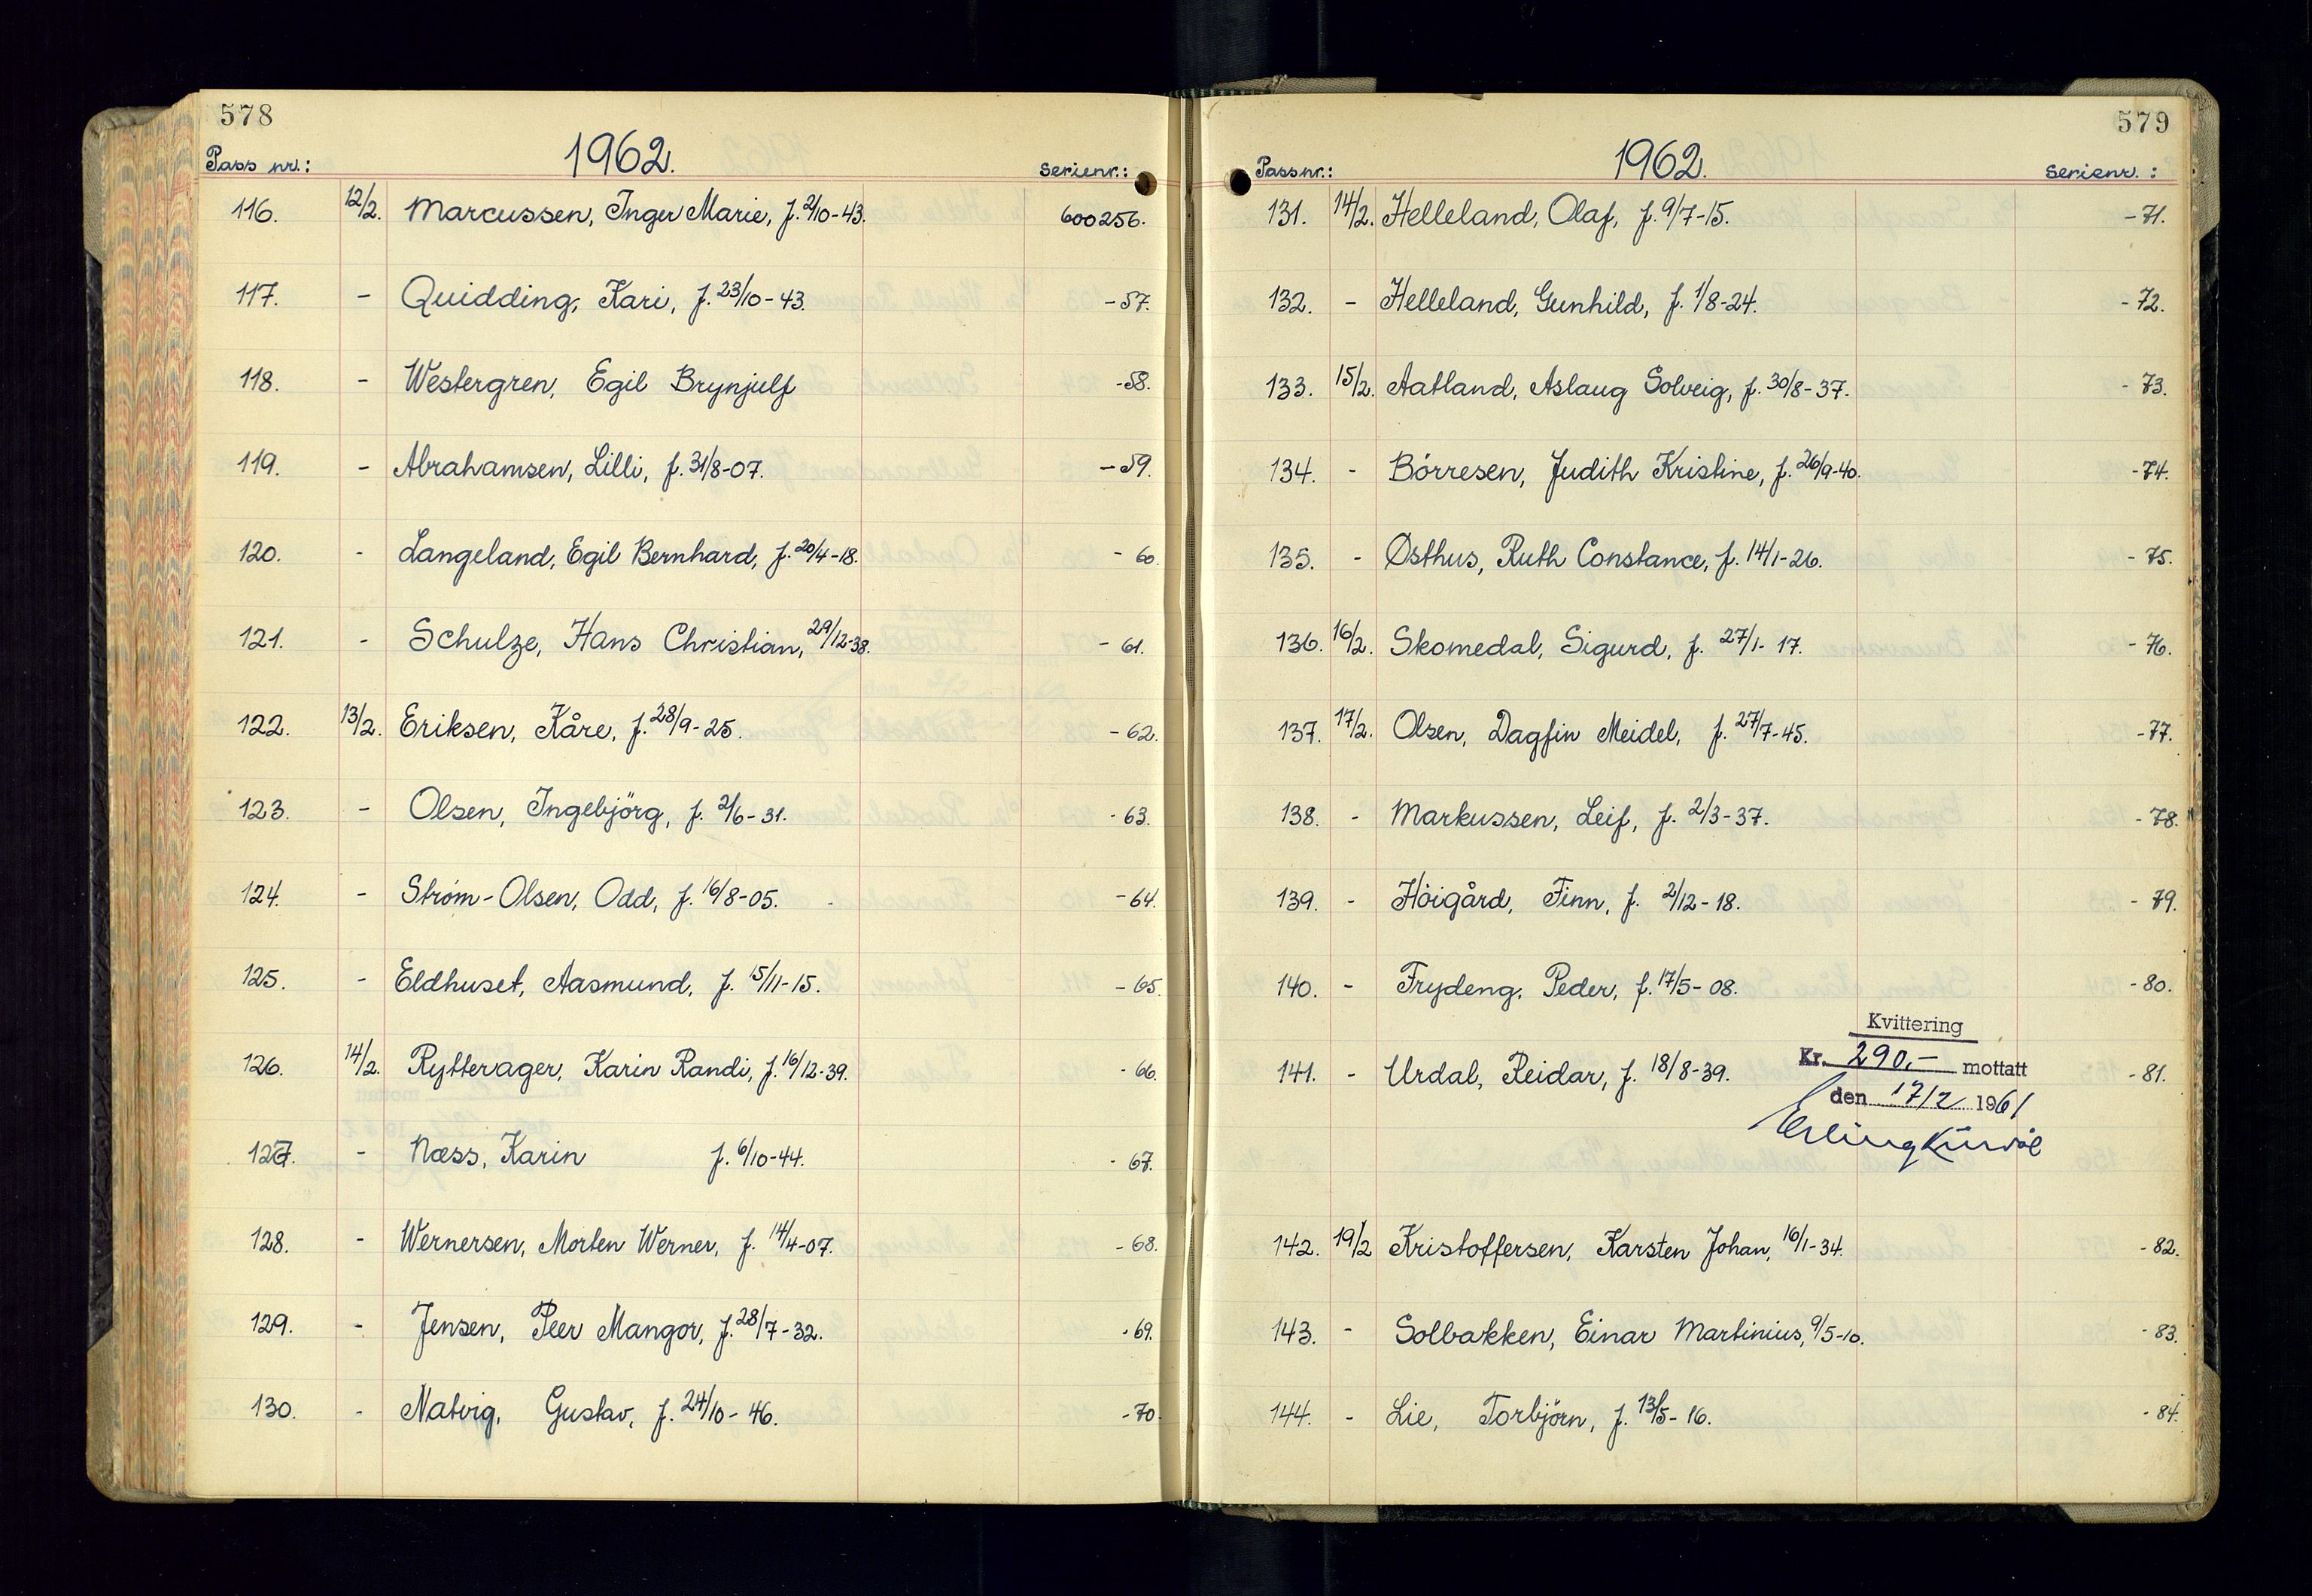 578
1962.
Pass nr.: Serienr.:
116. 12/2. Marcussen, Inger Marie, f. 2/10-43. 600256.
117. - Quidding, Kari, f. 23/10-43. -57.
118. - Westergren, Egil Brynjulf -58.
119. - Abrahamsen, Lilli, f. 31/8-07. -59.
120. - Langeland, Egil Bernhard, f. 20/4-18. -60.
121. - Schulze, Hans Christian, 29/12-38. -61.
122. 13/2. Eriksen, Kåre, f. 28/9-25. -62.
123. - Olsen, Ingebjörg, f. 2/6-31. -63.
124. - Strøm-Olsen, Odd, f. 16/8-05. -64.
125. - Eldhuset, Aasmund, f. 15/11-15. -65.
126. 14/2. Rytterager, Karin Randi, f. 16/12-39. -66.
127. - Næss, Karin f. 6/10-44. -67.
128. - Wernersen, Morten Werner, f. 14/4-07. -68.
129. - Jensen, Peer Mangor, f. 28/7-32. -69.
130. - Natvig, Gustav, f. 24/10-46. -70.
579
1962.
Passnr.: Serienr.:
131. 14/2. Helleland, Olaf, f. 9/7-15. -71.
132. - Helleland, Gunhild, f. 1/8-24. -72.
133. 15/2. Aatland, Aslaug Solveig, f. 30/8-37. -73.
134. - Børresen, Judith Kristine, f. 26/9-40. -74.
135. - Østhus, Ruth Constance, f. 14/1-26. -75.
136. 16/2. Skomedal, Sigurd, f. 27/1-17. -76.
137. 17/2. Olsen, Dagfin Meidel, f. 27/7-45. -77.
138. - Markussen, Leif, f. 2/3-37. -78.
139. - Höigård, Finn, f. 2/12-18. -79.
140. - Frydeng, Peder, f. 17/5-08. -80.
Kvittering
141. - Urdal, Reidar, f. 18/8-39. Kr. 290,- mottatt -81.
den 17/2 1961
Erling
142. 19/2 Kristoffersen, Karsten Johan, 16/1-34. -82.
143. - Solbakken, Einar Martinius, 9/5-10. -83.
144. - Lie, Torbjörn, f. 13/5-16. -84.